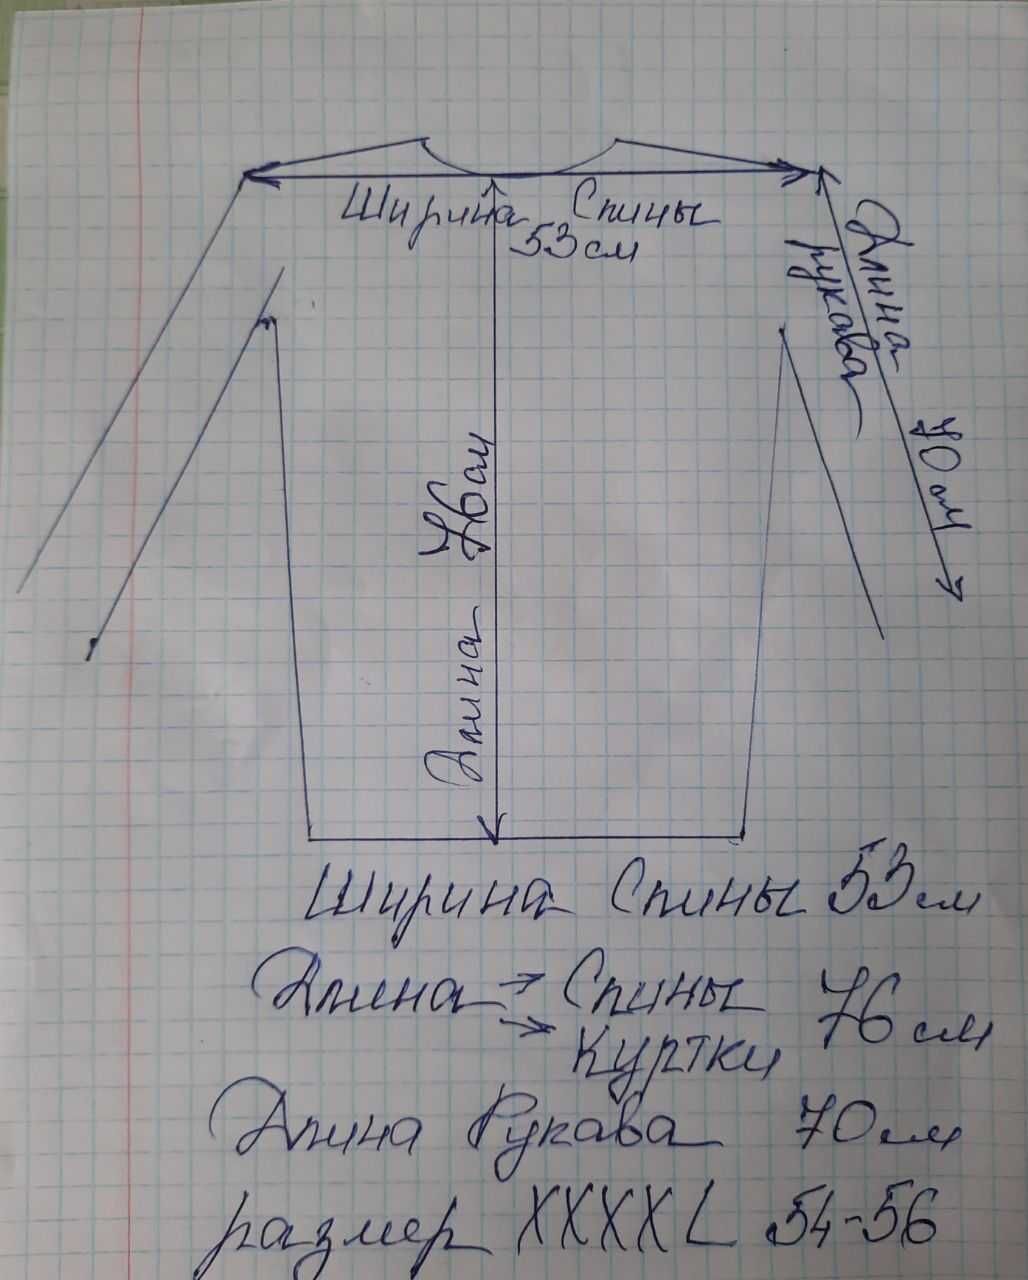 Ширина Спины
53 см
Длина рукава 70 см
Длина 76 см
Ширина Спины 53 см
Длина → Спины 76 см
→ Куртки
Длина Рукава 70 см
размер XXXXL 54-56